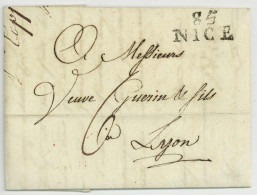 85
NICE
A Messieurs
Veuve Guerin & fils
a
Lyon